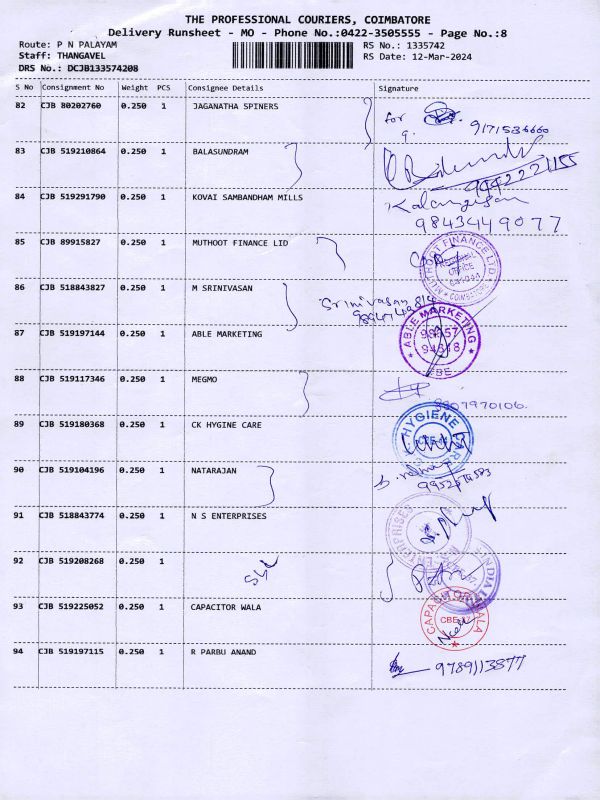 THE PROFESSIONAL COURIERS, COIMBATORE
Delivery Runsheet - MO - Phone No.:0422-3505555 - Page No.:8
Route: P N PALAYAM
RS No.: 1335742
Staff: THANGAVEL
RS Date: 12-Mar-2024
DRS No.: DCJB133574208
S No Consignment No Weight PCS Consignee Details Signature
82 CJB 80202760 0.250 1 JAGANATHA SPINERS
for
9171536660
83 CJB 519210864 0.250 1 BALASUNDRAM
9942221155
84 CJB 519291790 0.250 1 KOVAI SAMBANDHAM MILLS
9843449077
85 CJB 89915827 0.250 1 MUTHOOT FINANCE LID
MUTHOOT FINANCE LTD
REGIONAL
OFFICE
COIMBATORE
86 CJB 518843827 0.250 1 M SRINIVASAN
Srinivasan
87 CJB 519197144 0.250 1 ABLE MARKETING
ABLE MARKETING
CBE
88 CJB 519117346 0.250 1 MEGMO
89 CJB 519180368 0.250 1 CK HYGINE CARE
HYGIENE
90 CJB 519104196 0.250 1 NATARAJAN
91 CJB 518843774 0.250 1 N S ENTERPRISES
ENTERPRISES
92 CJB 519208268 0.250 1
93 CJB 519225052 0.250 1 CAPACITOR WALA
CAPACITOR WALA
94 CJB 519197115 0.250 1 R PARBU ANAND
9789113877